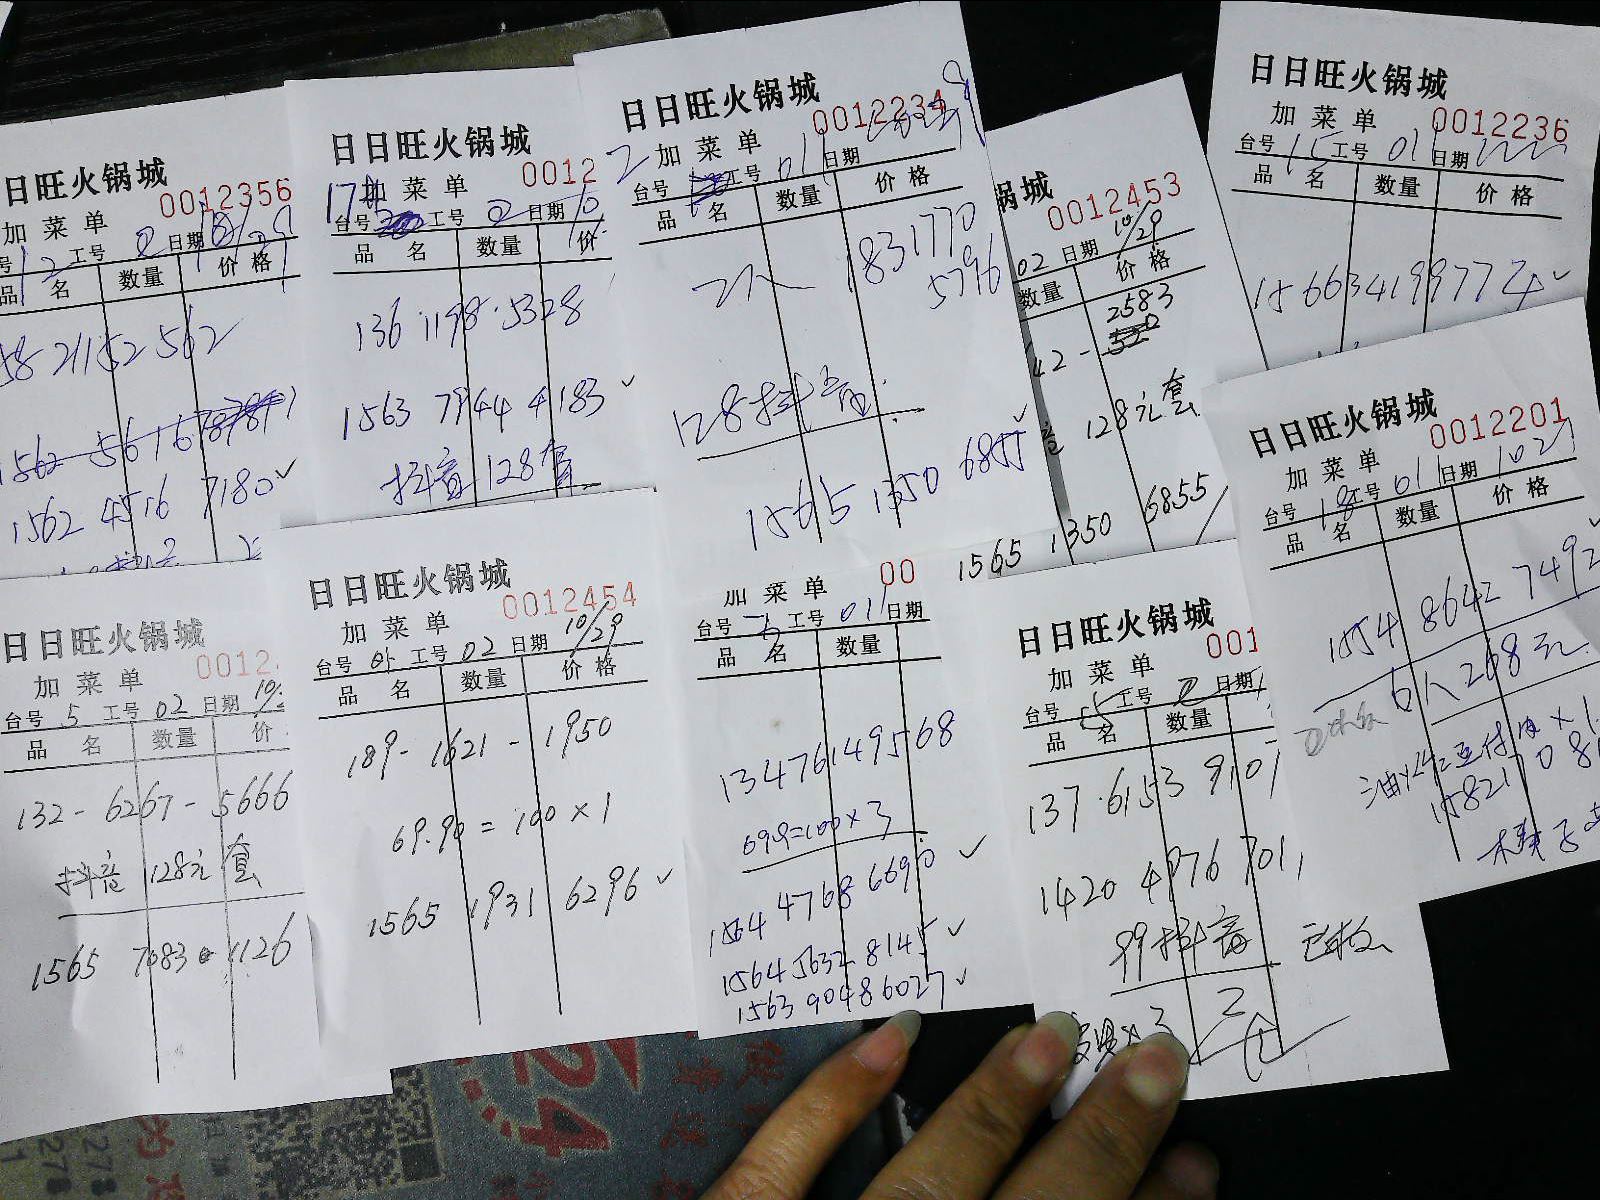 日旺火锅城
0012356
加菜单
号 12 工号 02 日期
品 名 数量 价格
58 21152 562
1562 4516 7180✓
日日旺火锅城
0012
加菜单
台号 工号 02 日期 10
品 名 数量 价
136·1198·5328
1563 7944 4183 ✓
抖音 128套
日日旺火锅城
0012234
2 加菜单
台号 工号 011 日期
品 名 数量 价格
2人 1831770
5796
128抖音
1565 1350 6855
锅城
0012453
02 日期 10/29
数量 价格
2583
42-
128元套
1565 1350 6855
日日旺火锅城
加菜单 0012236
台号 15 工号 011 日期
品 名 数量 价格
1566 3419 9774 ✓
日日旺火锅城
0012
加菜单
台号 5 工号 02 日期 10
品 名 数量 价
132-6267-5666
抖音 128元 套
1565 7683 1126
日日旺火锅城
0012454
加菜单
台号 外 工号 02 日期 10/29
品 名 数量 价格
189-1621-1950
69.90=100×1
1565 1931 6296 ✓
00
加菜单
台号 工号 011 日期
品 名 数量
13476149568
69.9=100×3
1564 4768 6690 ✓
1564 5632 8145 ✓
1563 9048 6027 ✓
日日旺火锅城
001
加菜单
台号 工号 2 日期
品 名 数量
137·6153 9101
1420 4976 7011
99抖音 已收
×3 2
日日旺火锅城
0012201
加菜单
台号 18 工号 011 日期 1027
品 名 数量 价格
1554 8642 7492
6人 268元
158217081